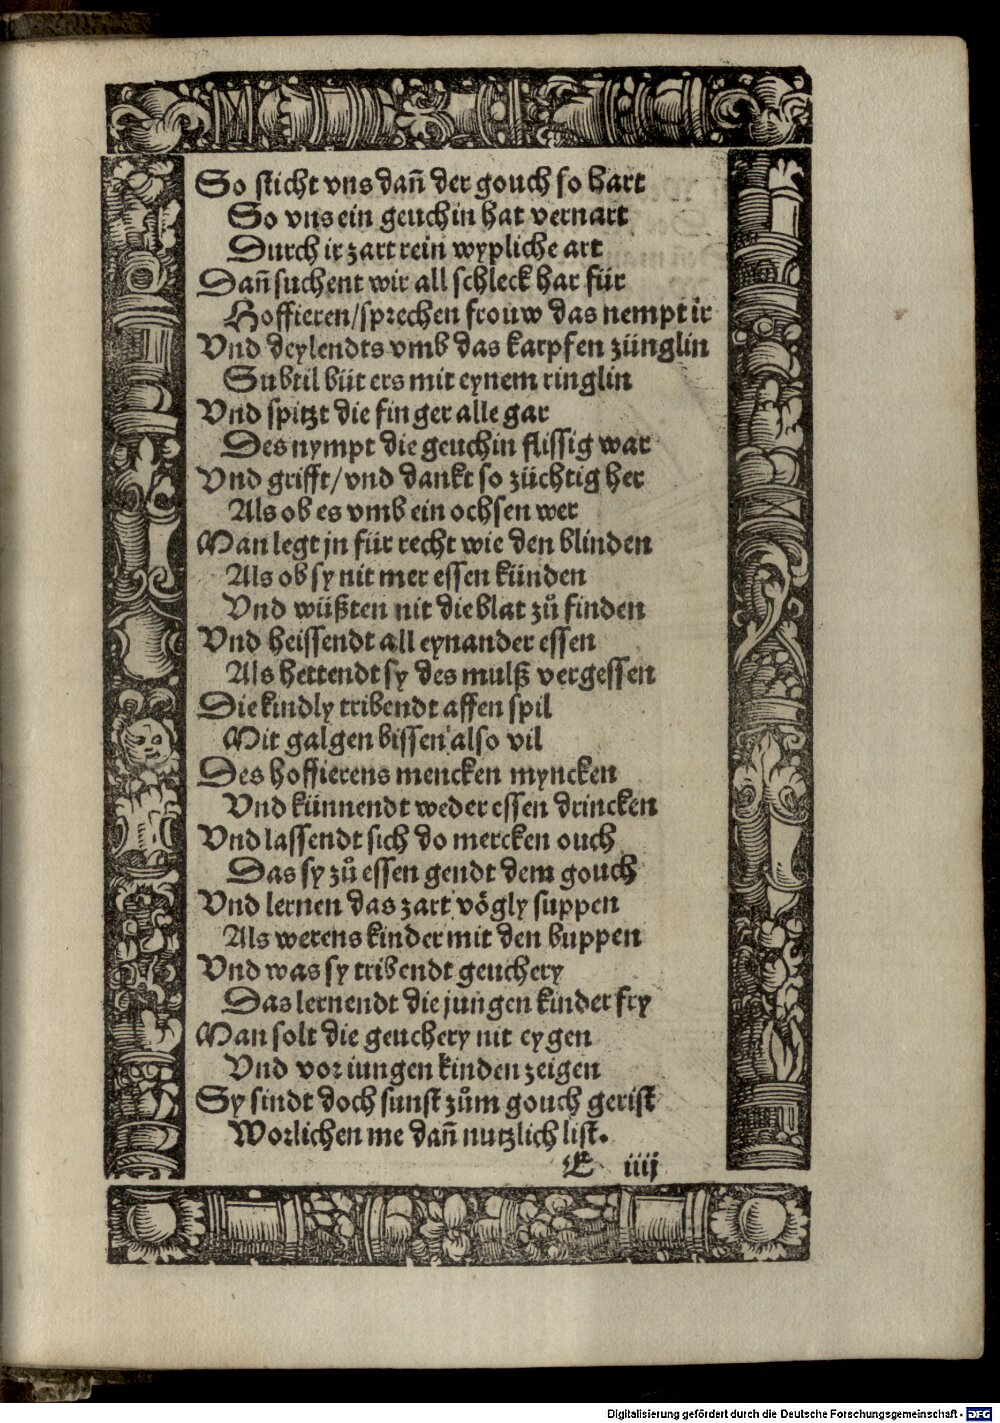 So sticht vns dañ der gouch so hart
So vns ein geuchin hat vernart
Durch ir zart rein wypliche art
Dañ suchent wir all schleck har für
Hoffieren/sprechen frouw das nempt ir
Vnd deylendts vmb das karpfen zünglin
Subtil büt ers mit eynem ringlin
Vnd spitzt die finger alle gar
Des nympt die geuchin flissig war
Vnd grifft/vnd dankt so züchtig her
Als ob es vmb ein ochsen wer
Man legt jn für recht wie den blinden
Als ob sy nit mer essen künden
Vnd wüßten nit die blat zů finden
Vnd heissendt all eynander essen
Als hettendt sy des mulß vergessen
Die kindly tribendt affen spil
Mit galgen bissen also vil
Des hoffierens mencken myncken
Vnd künnendt weder essen drincken
Vnd lassendt sich do mercken ouch
Das sy zů essen gendt dem gouch
Vnd lernen das zart vögly suppen
Als werens kinder mit den buppen
Vnd was sy tribendt geuchery
Das lernendt die jungen kinder fry
Man solt die geuchery nit eygen
Vnd vor iungen kinden zeigen
Sy sindt doch sunst zům gouch gerist
Worlichen me dañ nutzlich list.
E iiij
Digitalisierung gefördert durch die Deutsche Forschungsgemeinschaft - DFG